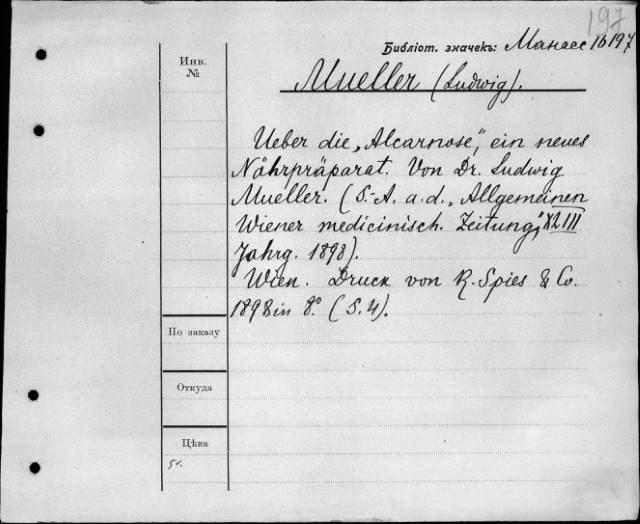 197
Библіот. значекъ: Манасс 16197
Инв.
№
Mueller (Ludwig).
Ueber die „Alcarnose“, ein neues
Nährpräparat. Von Dr. Ludwig
Mueller. (S.-A. a. d. „Allgemeinen
Wiener medicinisch. Zeitung“, XLIII
Jahrg. 1898).
Wien. Druck von R. Spies & Co.
1898 in 8.° (S. 4).
По заказу
Откуда
Цѣна